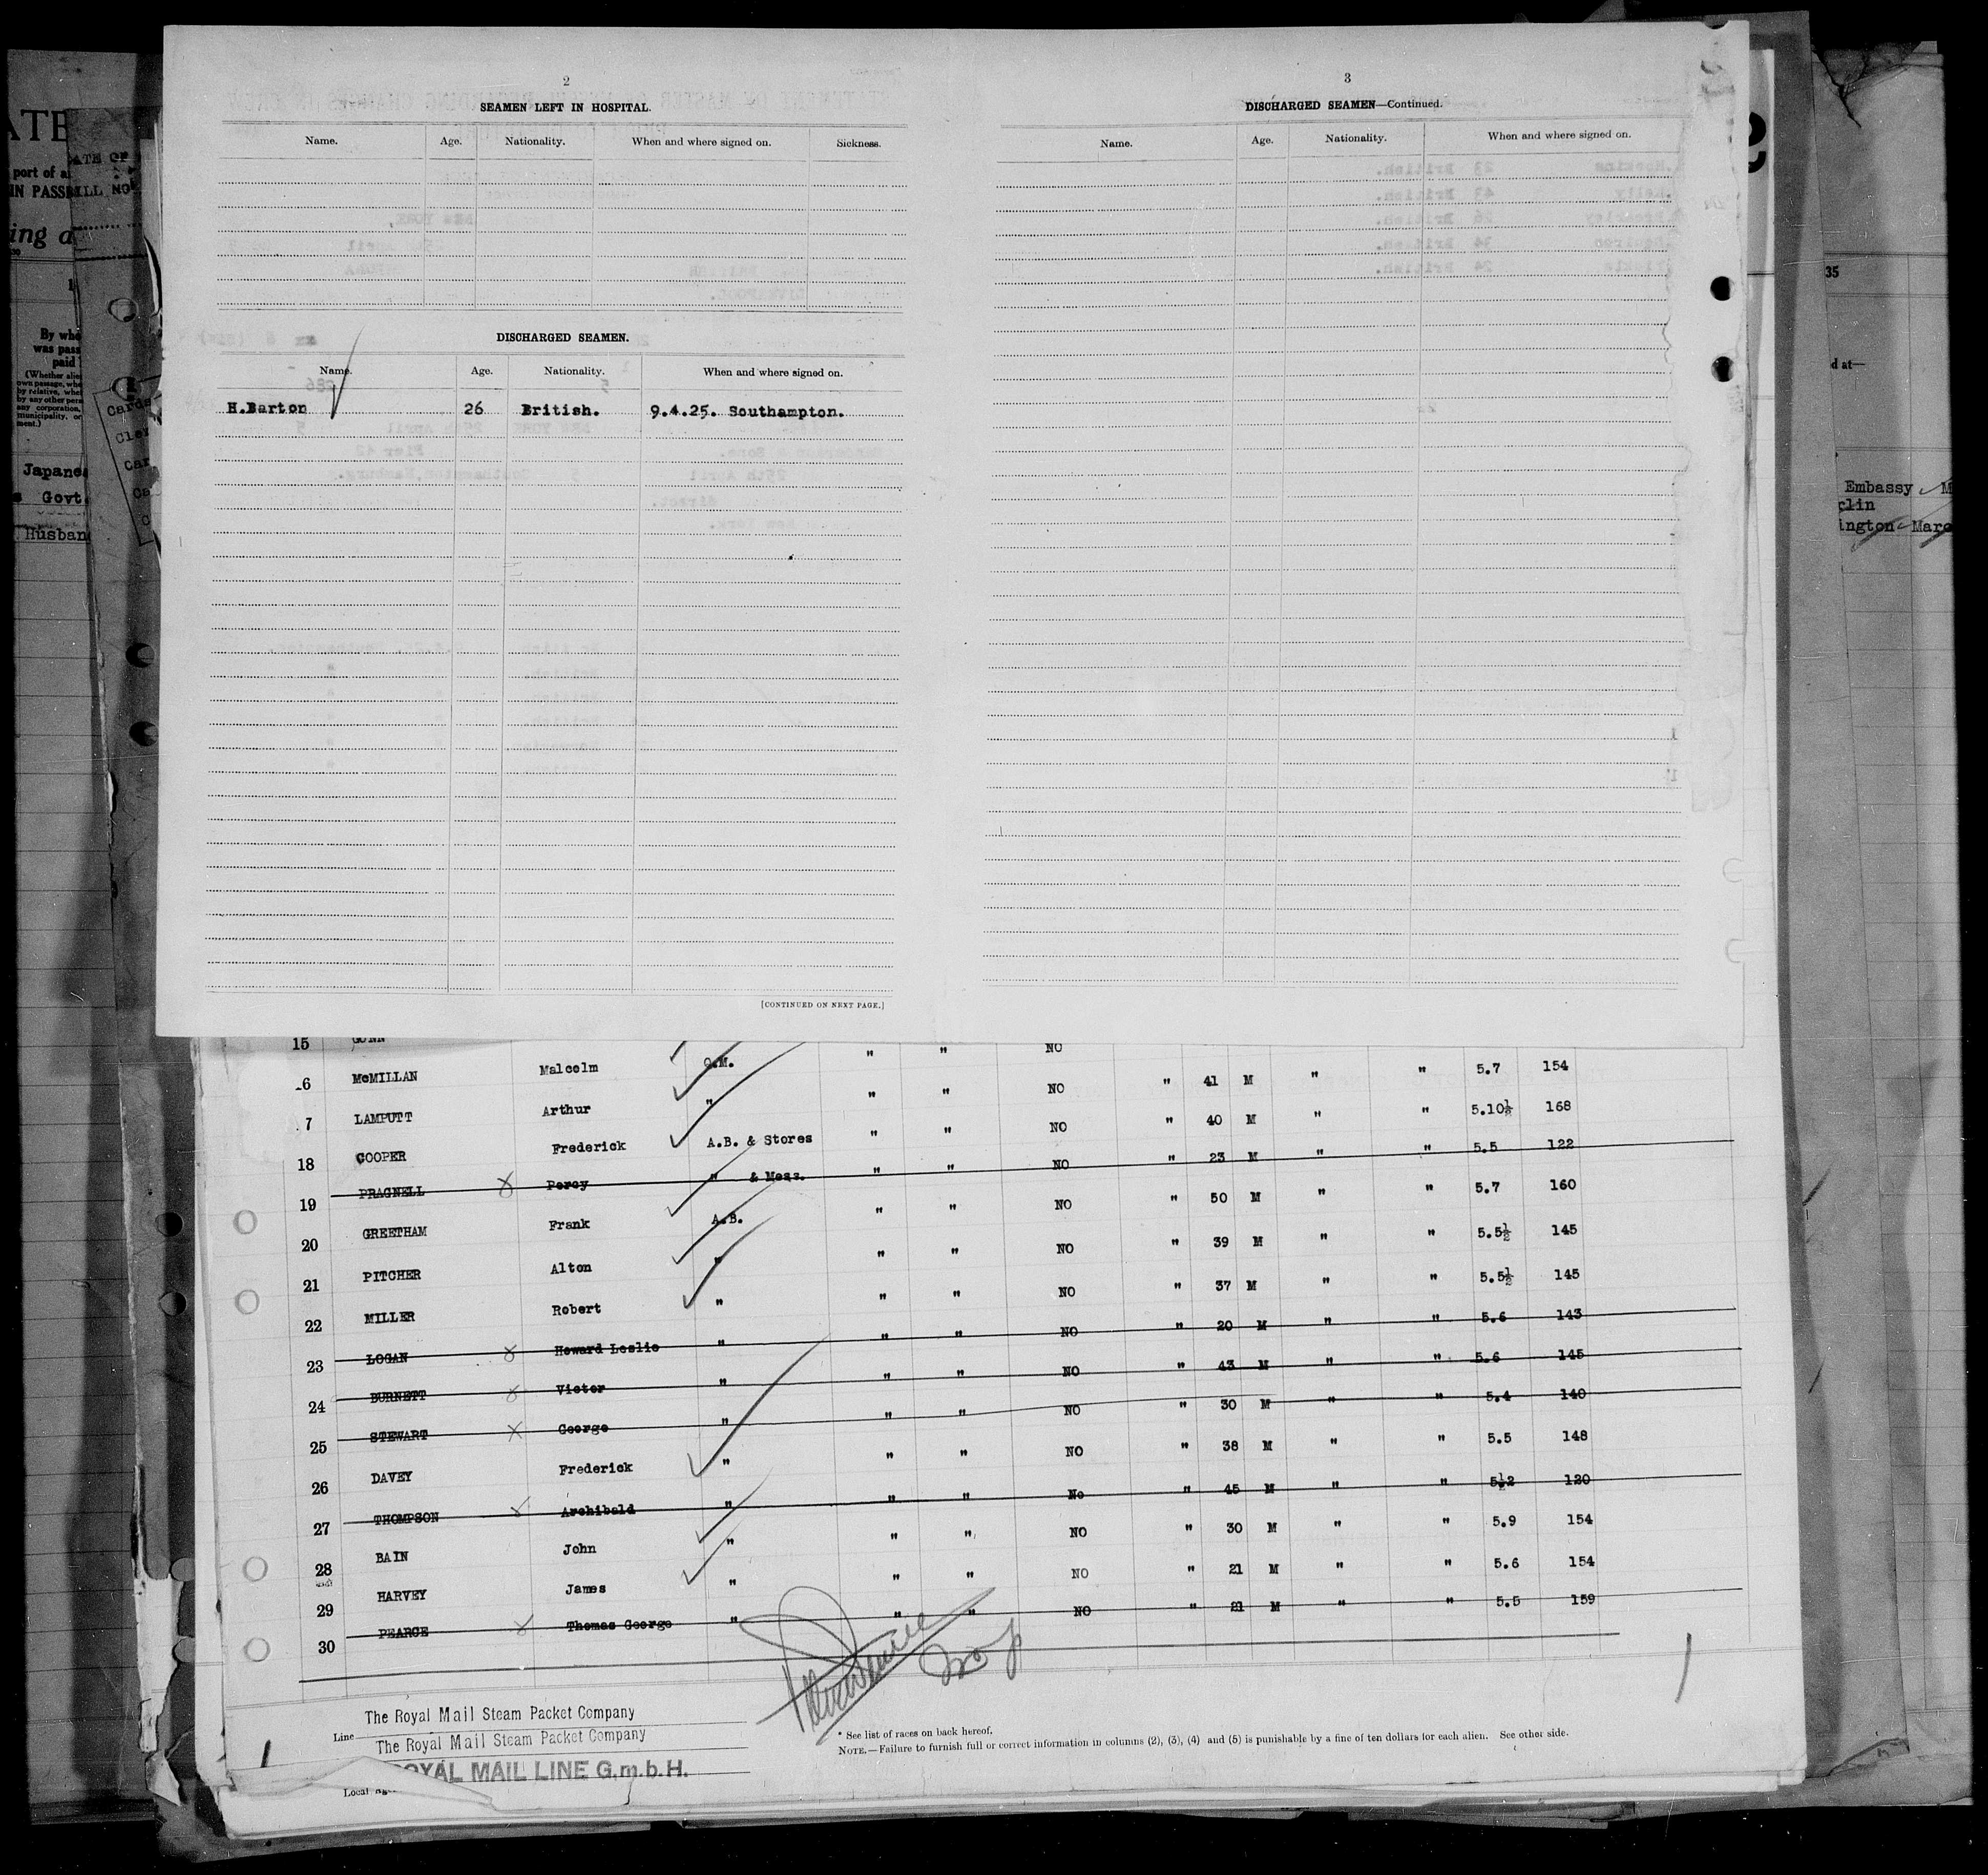 2
SEAMEN LEFT IN HOSPITAL.
Name. Age. Nationality. When and where signed on. Sickness.
DISCHARGED SEAMEN.
Name. Age. Nationality. When and where signed on.
H.Barton 26 British. 9.4.25. Southampton.
[CONTINUED ON NEXT PAGE.]
3
DISCHARGED SEAMEN—Continued.
Name. Age. Nationality. When and where signed on.
ATE
port of a
IN PASS
ATE OF
BILL NO
ing a
By whe
was pass
paid
(Whether alien
own passage, whe
by relative, whet
by any other pers
any corporation,
municipality, or
ment.)
Cards
Cler
Car
Ca
C
Japane
Govt
Husban
35
d at—
Embassy M
clin
ington Marc
15 GUNN " " NO
6 McMILLAN Malcolm Q.M. " " NO " 41 M " " 5.7 154
7 LAMPUTT Arthur " " " NO " 40 M " " 5.10½ 168
18 COOPER Frederick A.B. & Stores " " NO " 23 M " " 5.5 122
19 PRAGNELL Percy " & Mess. " " NO " 50 M " " 5.7 160
20 GREETHAM Frank A.B. " " NO " 39 M " " 5.5½ 145
21 PITCHER Alton " " " NO " 37 M " " 5.5½ 145
22 MILLER Robert " " " NO " 20 M " " 5.6 143
23 LOGAN Howard Leslie " " " NO " 43 M " " 5.6 145
24 BURNETT Victor " " " NO " 30 M " " 5.4 140
25 STEWART George " " " NO " 38 M " " 5.5 148
26 DAVEY Frederick " " " No " 45 M " " 5½2 120
27 THOMPSON Archibald " " " NO " 30 M " " 5.9 154
28 BAIN John " " " NO " 21 M " " 5.6 154
29 HARVEY James " " " NO " 21 M " " 5.5 159
30 PEARCE Thomas George "
The Royal Mail Steam Packet Company
Line
The Royal Mail Steam Packet Company
ROYAL MAIL LINE G.m.b.H.
Local Ag
* See list of races on back hereof.
NOTE.—Failure to furnish full or correct information in columns (2), (3), (4) and (5) is punishable by a fine of ten dollars for each alien. See other side.